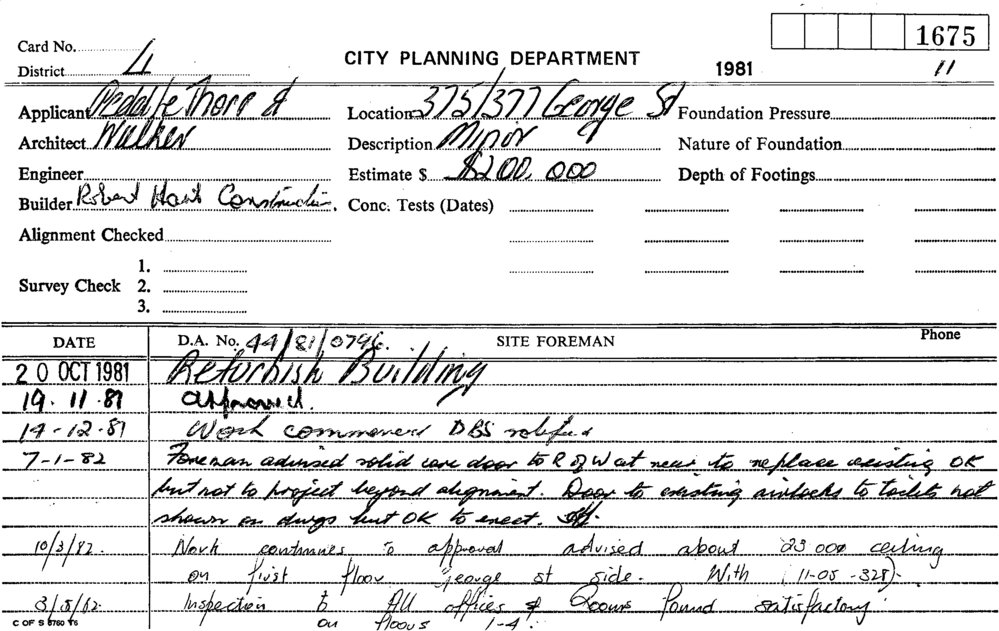 1675
Card No.
District 4
CITY PLANNING DEPARTMENT
1981 11
Applicant Peddle Thorp &
Location 375/377 George St
Foundation Pressure
Architect Walker
Description Minor
Nature of Foundation
Engineer
Estimate $ $200,000
Depth of Footings
Builder Robert Constructions.
Conc. Tests (Dates)
Alignment Checked
1.
Survey Check 2.
3.
DATE D.A. No. 44/81/0796. SITE FOREMAN Phone
20 OCT 1981 Refurbish Building
19.11.81 Approved.
14-12-81 Work commenced DBS notified
7-1-82 Foreman advised solid core door to R of W at rear to replace existing OK
but not to project beyond alignment. Door to existing airlocks to toilets not
shown on dwgs but OK to erect.
10/3/82. Work continues to approval advised about 23 000 ceiling
on first floor George st side. With (11-05-328).
Inspection to All offices & Rooms found satisfactory.
on floors 1-4.
C OF S 8760 76